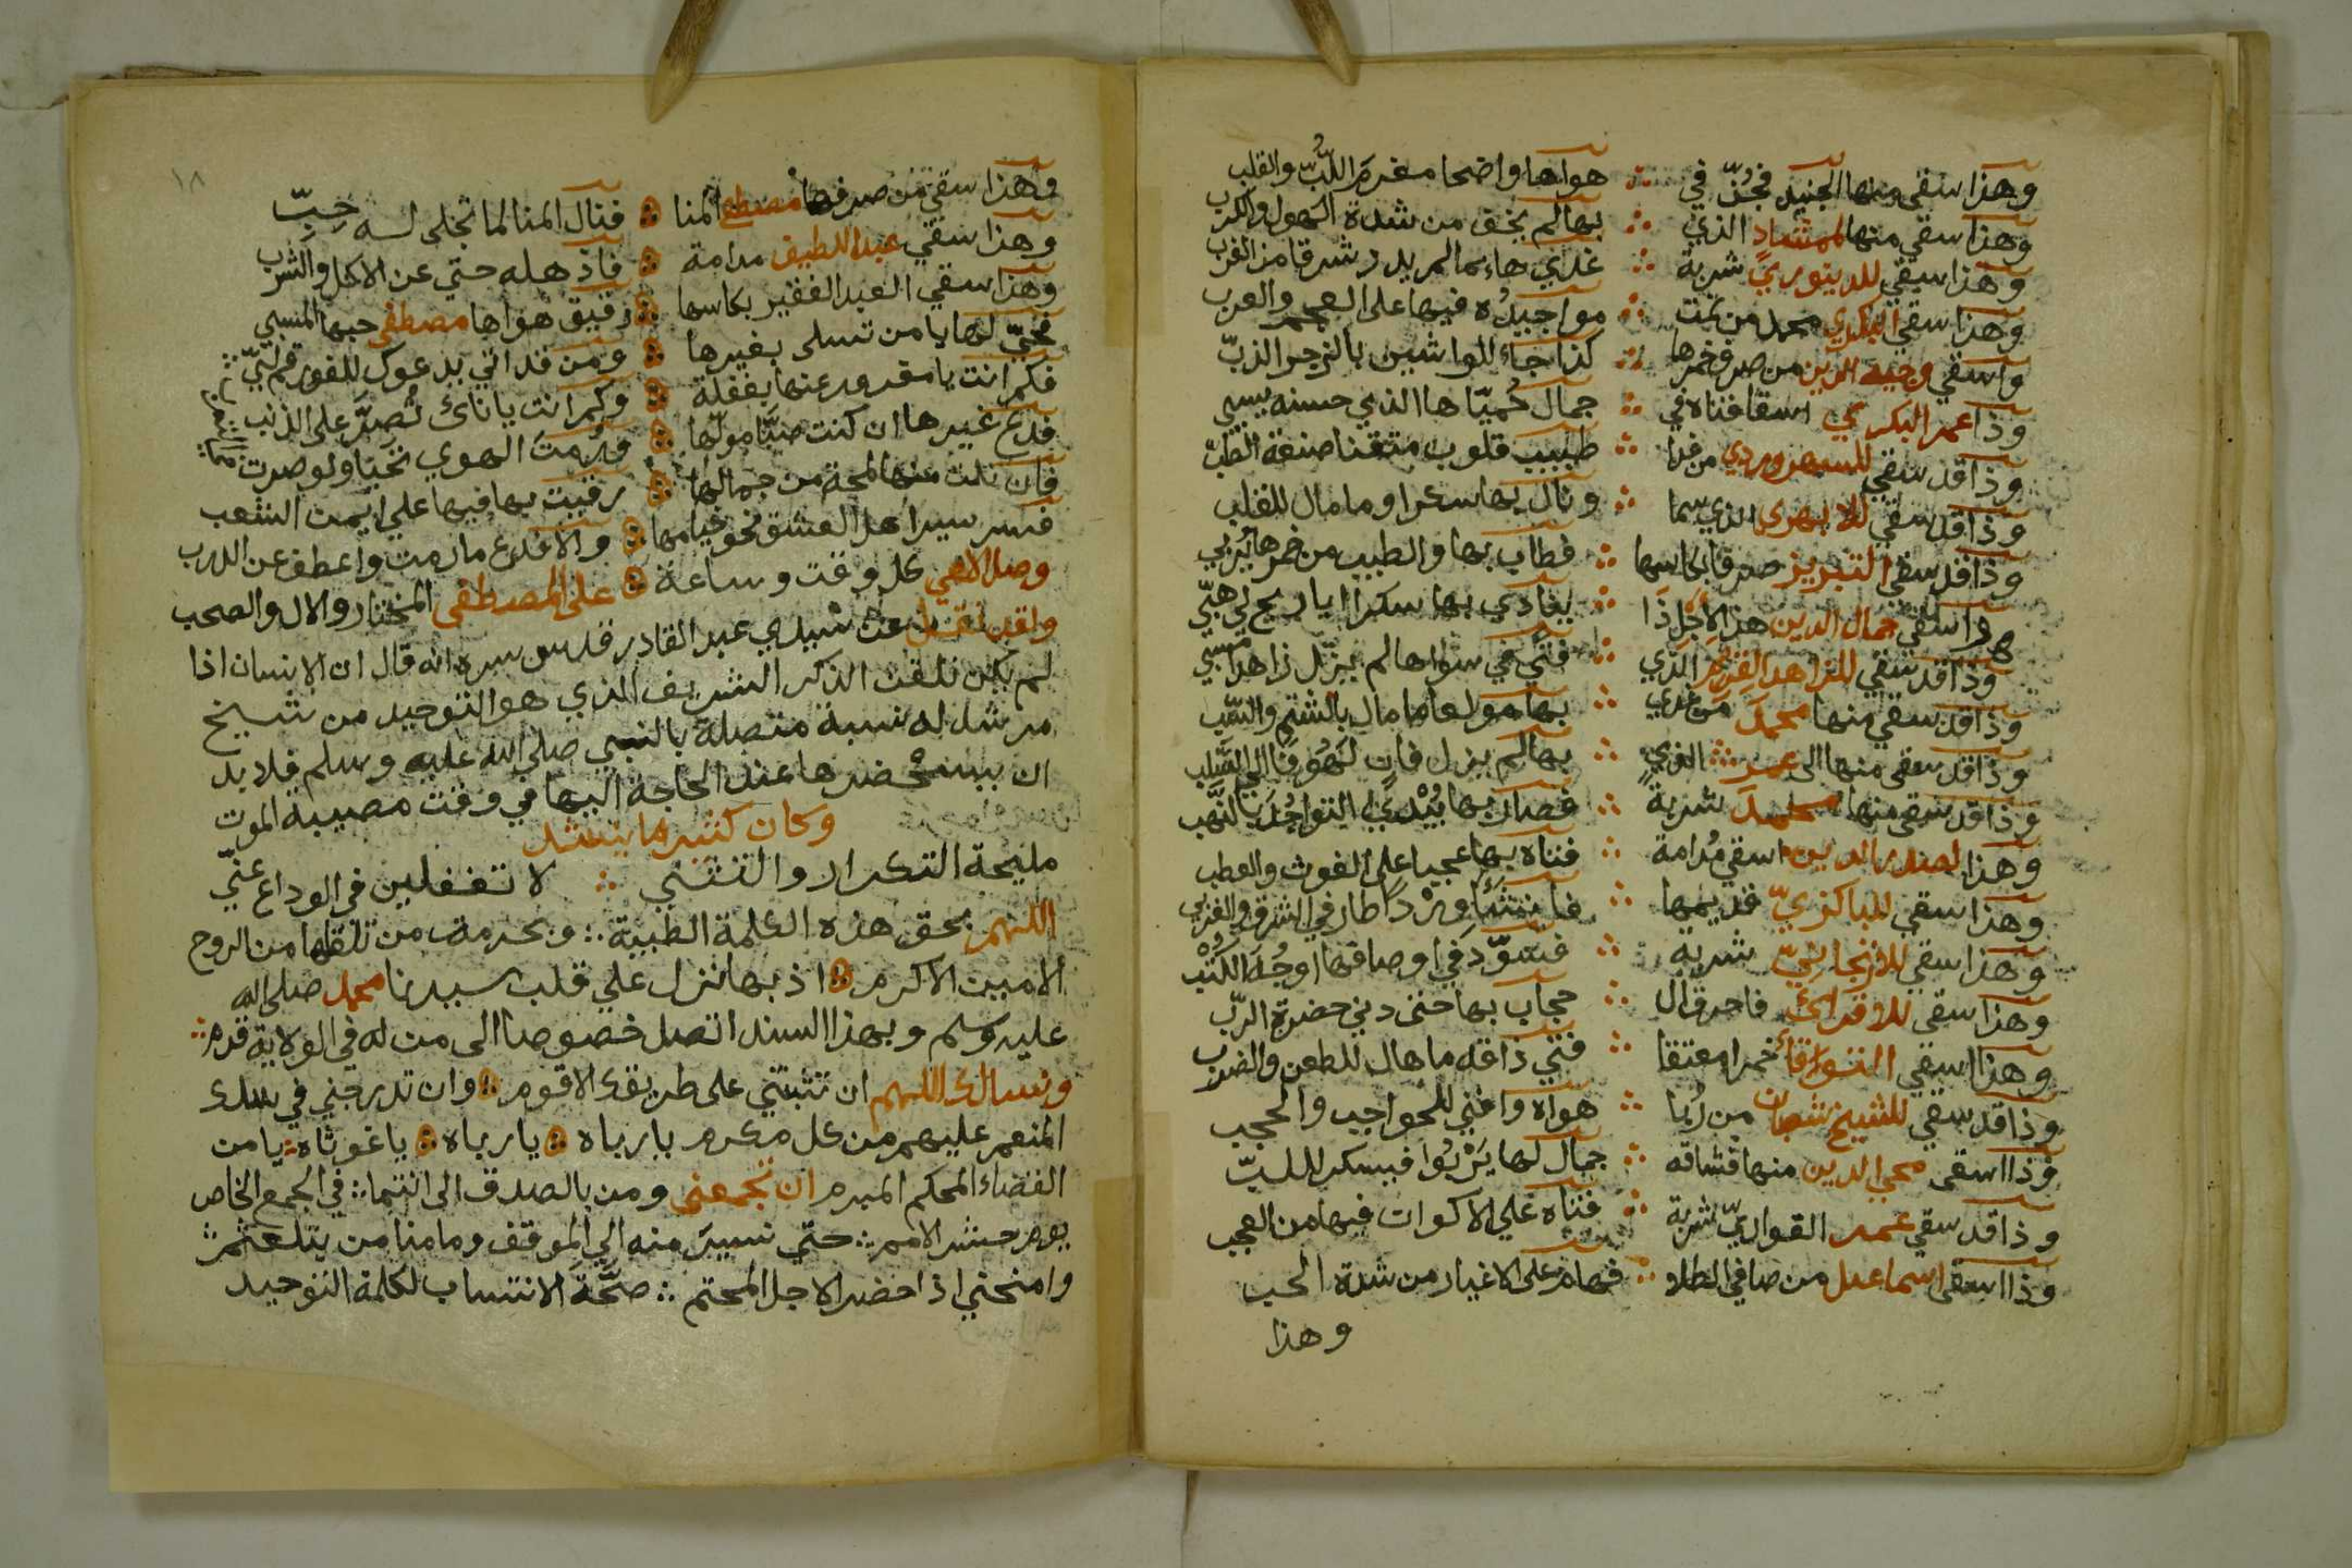 وهذا سقي منها الجنيد فجُنّ في ∴ هواها واضحا مغرمَ اللُّبّ والقلب
وهذا سقي منها لممشاد الذي ∴ بها لم يخف من شدة الهول والكرب
وهذا سقي للدينوري شربة ∴ غدي هاءما لم يدر شرقا من الغرب
وهذا سقي البكري محمد من نمت ∴ مواجيدُه فيها على العجم والعرب
واسقي وجيه الدين من صرف خمرها ∴ كذا جاء للواشين بالزجر الذبّ
وذا عمر البكري اسقا فتاه في ∴ جمال حُميّاها الذي حسنه يسبي
وذا قد سقي للسهروردي من غدا ∴ طبيب قلوب متقنا صنعة الطب
وذا قد سقي للابهري الذي سما ∴ ونال بها سكرا وما مال للقلب
وذا قد سقي التبريز صرفا بكاسها ∴ فطاب بها والطيب من خمرها يُربي
واسقي جمال الدين هذا الاجل ذا ∴ ينادي بها سكرا ايا ريح لي هبّي
وذا قد سقي للزاهد القرم الذي ∴ فتًي في سواها لم يزل زاهدا
وذا قد سقي منها محمدَ من غدي ∴ بها مولعا ما مال بالشتم والسّب
وذا قد سقي منها الى عمر الذي ∴ بها لم يزل فانٍ
وذا قد سقي منها شربةً ∴ فصار بها يُبْدي التواجُدَ بالنّهب
وهذا لصدر الدين اسقي مُدامة ∴ فتاه بها عجبا على الغوث والقطب
وهذا سقي للباكزيّ قديمها ∴ فانشَأ وِرْدًا طار في الشرق والغرب
وهذا سقي للازنجانيّ شربه ∴ فسوّد في اوصافها اوجُهَ الكُتْب
وهذا سقي للاقرائي فاحرق ال ∴ حجاب بها حتى دني حضرة الربّ
وهذا سقي التوقاتي خمرا معتقا ∴ فتي ذاقه ما هال للطعن والضرب
وذا قد سقي للشيخ شعبان من رُبا ∴ هواه وافني للحواجب والحجب
وذا اسقي محي الدين منها فشاقه ∴ جمال لها يَرْبُوا فيسكر للـلبّ
وذا قد سقي عمر القواريّ شربة ∴ فتاه علي الاكوان فيها من العجب
وذا اسقي اسماعيل من صافي الطلا ∴ فهام على الاغيار من شدة الحب
وهذا
١٨
وهذا سقي من صرفها مصطفي المنا ∴ فنال المنا لما تجلى له حِبّ
وهذا سقي عبد اللطيف مدامة ∴ فاذهله حتي عن الاكل والشرب
وهذا سقي العبد الفقير بكاسها ∴ رقيق هواها مصطفى حبها المنسبي
فحيّ لها يا من تسلى بغيرها ∴ ومن قد اتي يدعوك للغور قم لبّي
فكم انت يا مغرور عنها بغفلة ∴ وكم انت يا ناءي تُصِرَّ على الذنب
فدع غيرها ان كنت صبًّا مولّها ∴ ودُمت الهوي تحيا ولو صرت
فان نلت منها لمحة من جمالها ∴ رقيت بها فيها علي ايمن الشعب
فسر سيرا هل العشق نحو خيامها ∴ والا فدع ما رمت واعطف عن الدرب
وصل الاهي كل وقت وساعة ∴ على المصطفى المختار والال والصحب
ولقد نقل عن سيدي عبد القادر قدس سره انه قال ان الانسان اذا
لم يكن تلقن الذكر الشريف الذي هو التوحيد من شيخ
مرشد له نسبة متصلة بالنبي صلي الله عليه وسلم فلا بد
ان يستحضرها عند الحاجة اليها في وقت مصيبة الموت
وكان كثيرا ما ينشد
مليحة التكرار والتثني ∴ لا تغفلين في الوداع عنّي
اللهم بحق هذه الكلمة الطيبة ∴ وبحرمة من تلقاها من الروح
الامين الاكرم ∴ اذ بها نزل علي قلب سيدنا محمد صلى الله
عليه وسلم وبهذا السند اتصل خصوصا الى من له في الولاية قدم ∴
ونسالك اللهم ان تثبتني على طريقك الاقوم ∴ وان تدرجني في سلك
المنعم عليهم من كل مكرم يا رباه ∴ يا رباه ∴ يا غوثاه ∴ يا من
القضاء المحكم المبرم ان تجمعني ومن بالصدق الى انتما ∴ في الجمع الخاص
يوم حشر الامم ∴ حتي نسيرَ منه الي الموقف وما منا من يتلعثم ∴
وامنحني اذا حضر الاجل المحتم ∴ صحَّةَ الانتساب لكلمة التوحيد